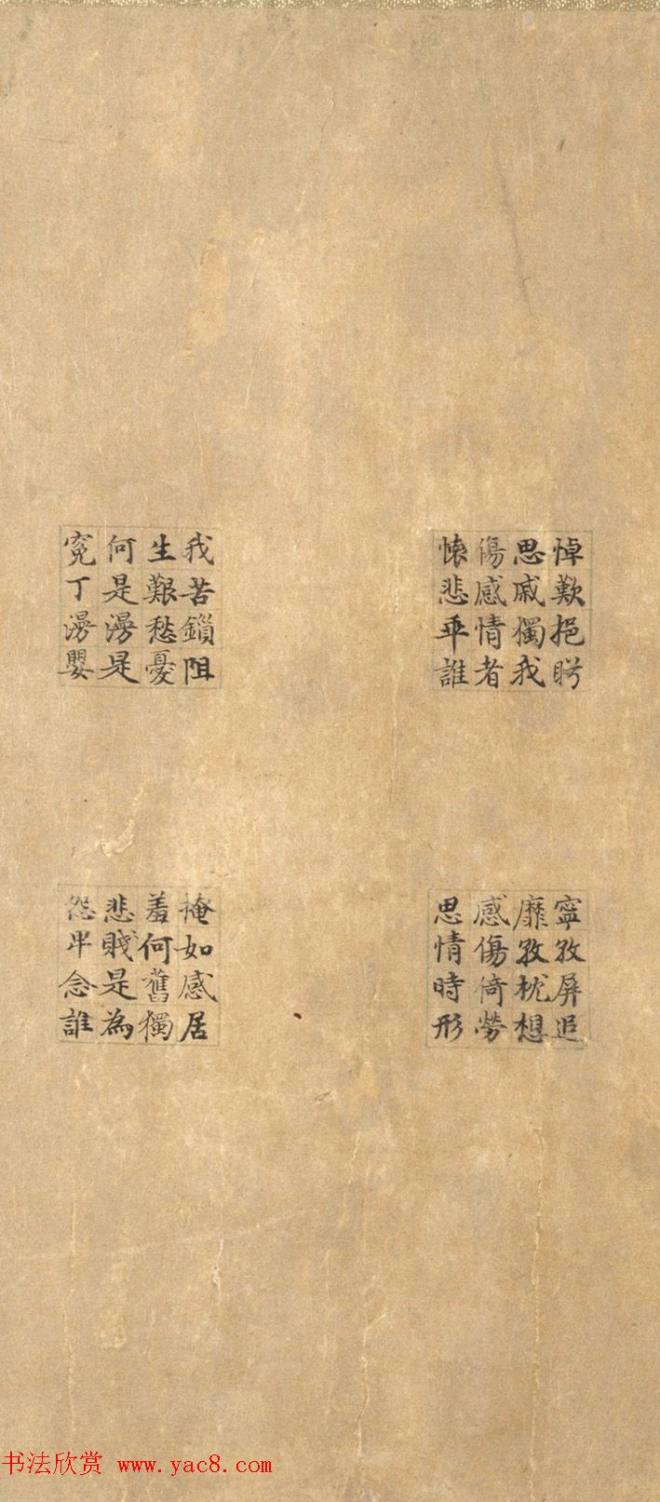 悼歎挹
思戚獨我
傷感情者
懷悲乖誰
我苦鎖阻
生艱愁憂
何是漫是
冤丁漫嬰
寧孜屏追
靡孜枕想
感傷倚勞
思情時形
掩如感居
羞何舊獨
悲賤是為
怨念誰
书法欣赏 www.yac8.com